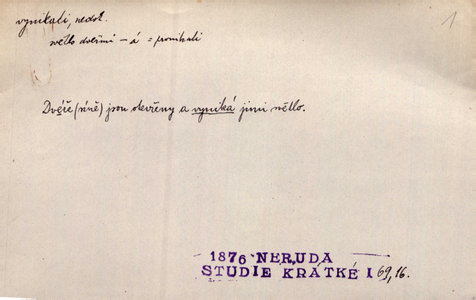 vynikati, nedok.
1
světlo dveřmi -á = pronikati
Dvéře (síně) jsou otevřeny a vyniká jimi světlo.
1876 NERUDA
STUDIE KRÁTKÉ I 69, 16.